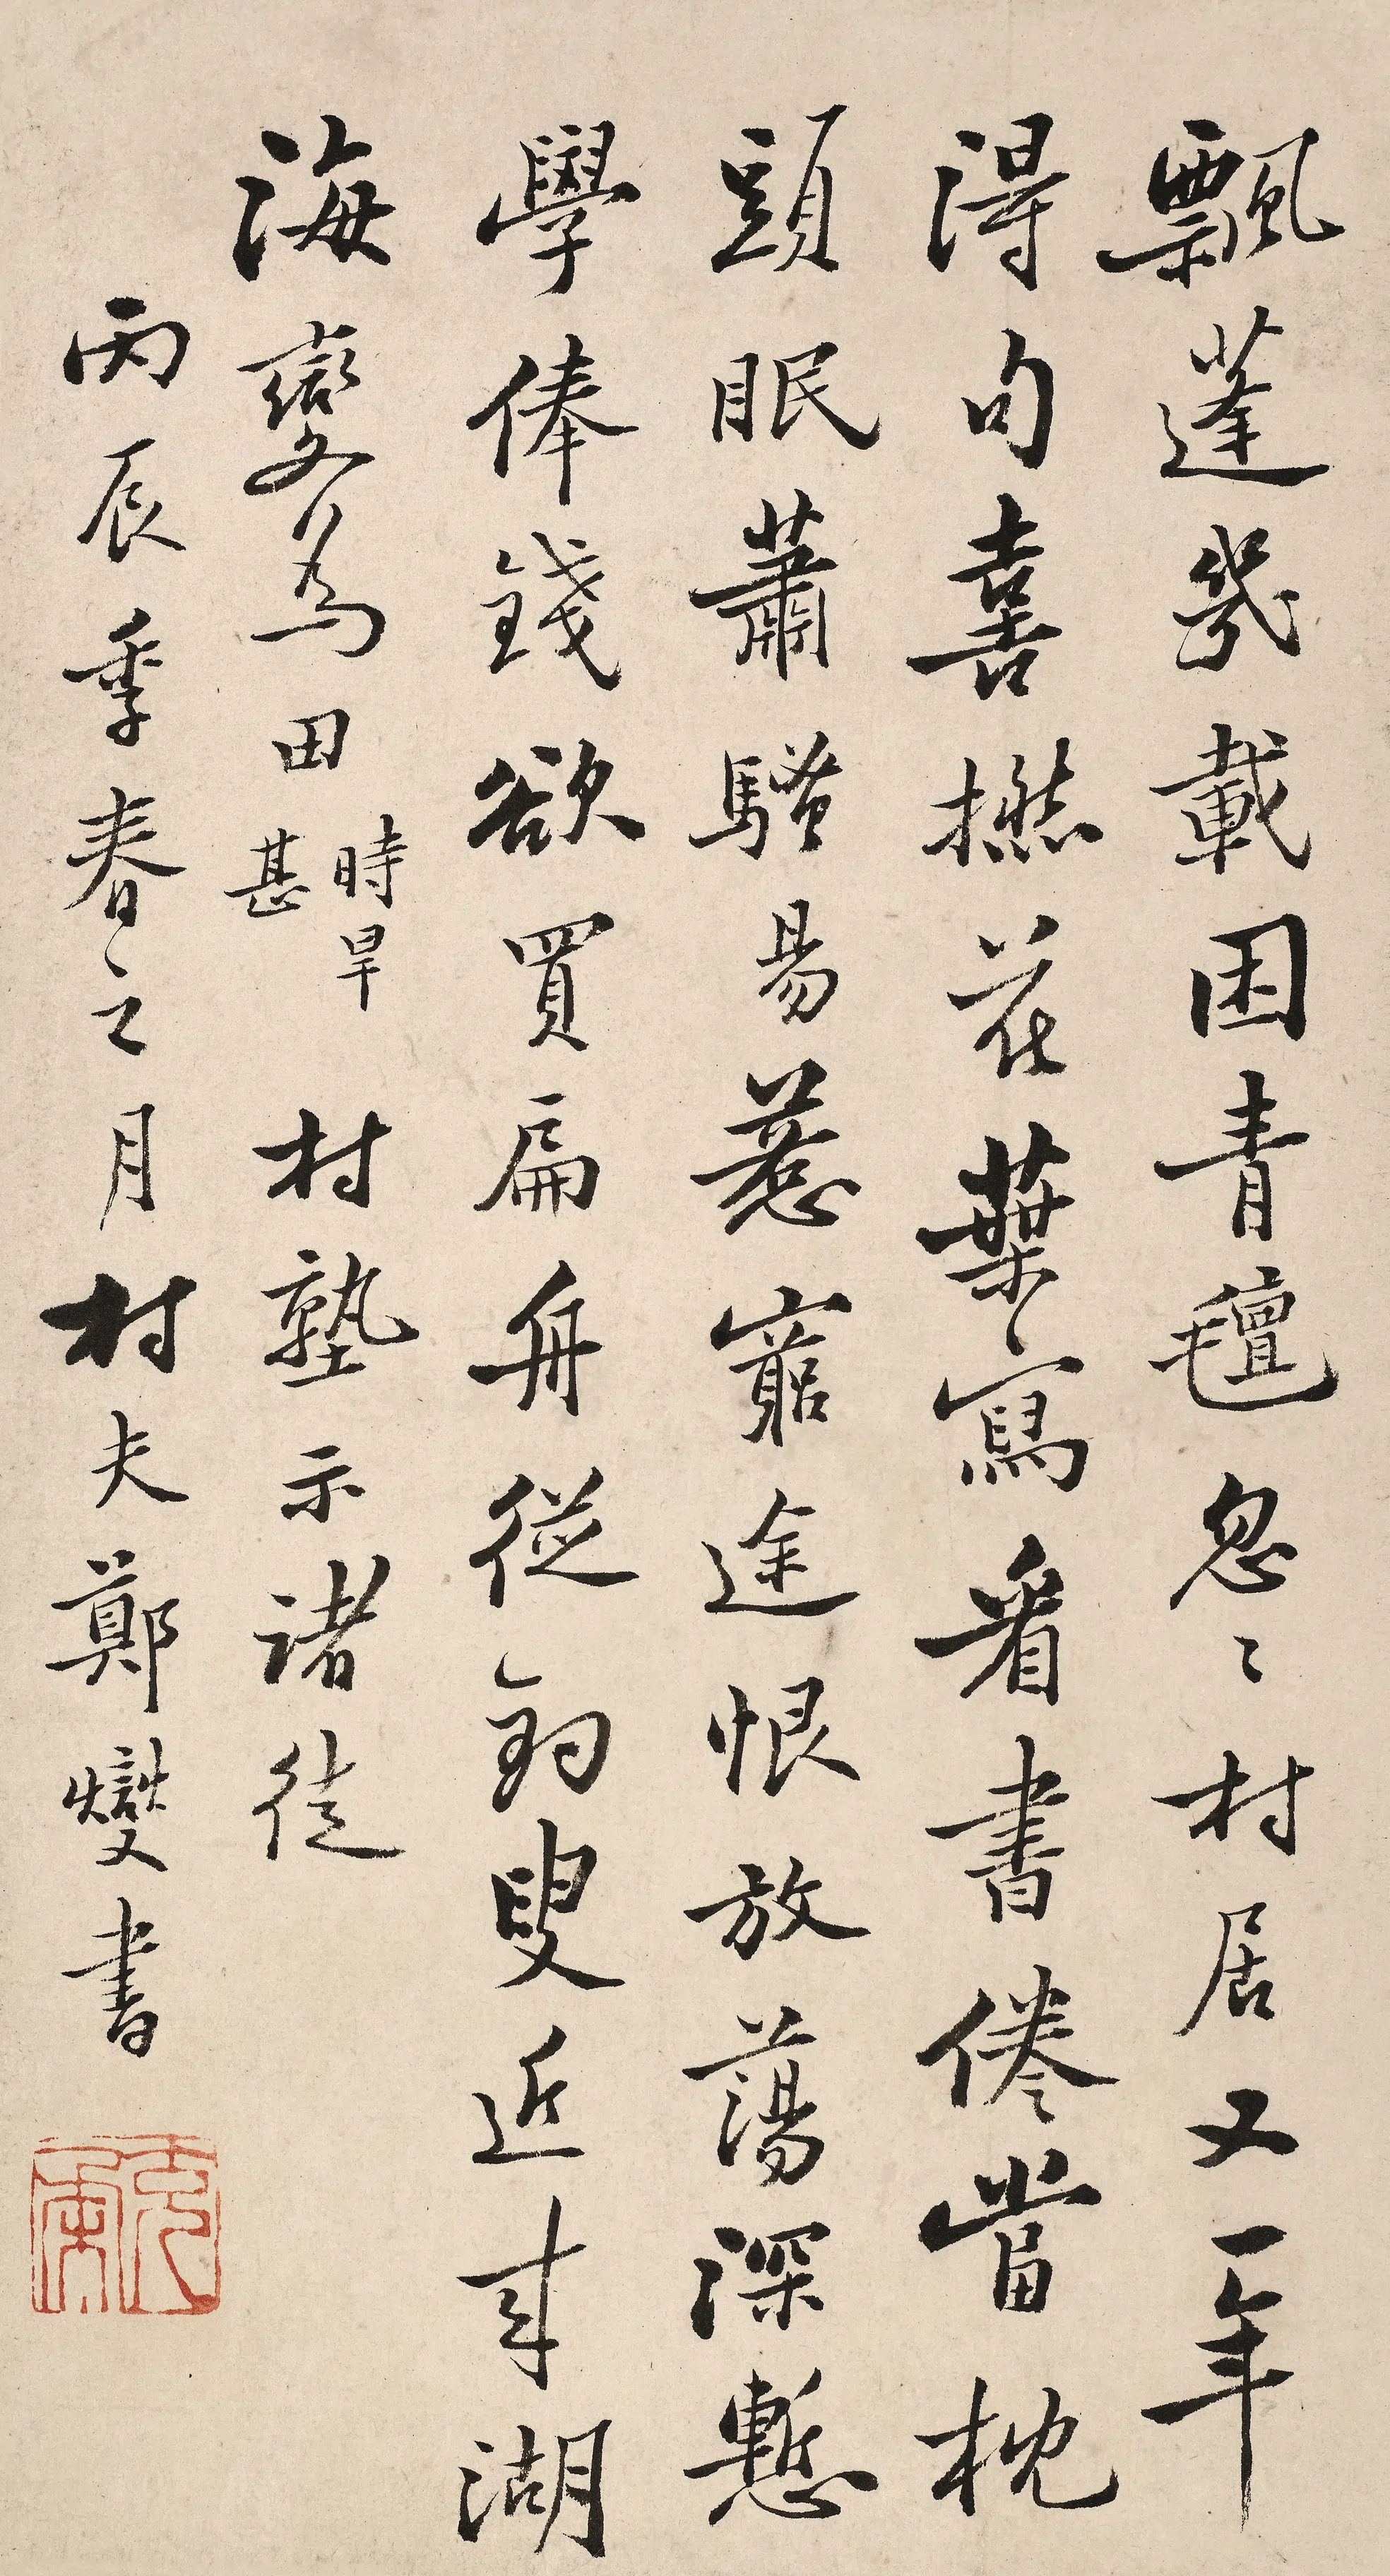 飄蓬幾載困青氊忽〻村居又一年
得句喜撚花葉寫看書倦當枕
頭眠蕭騷易惹窮途恨放蕩深慙
學俸錢欲買扁舟從釣叟近來湖
海變為田時旱甚 村塾示諸徒
丙辰季春之月村夫鄭燮書
克柔